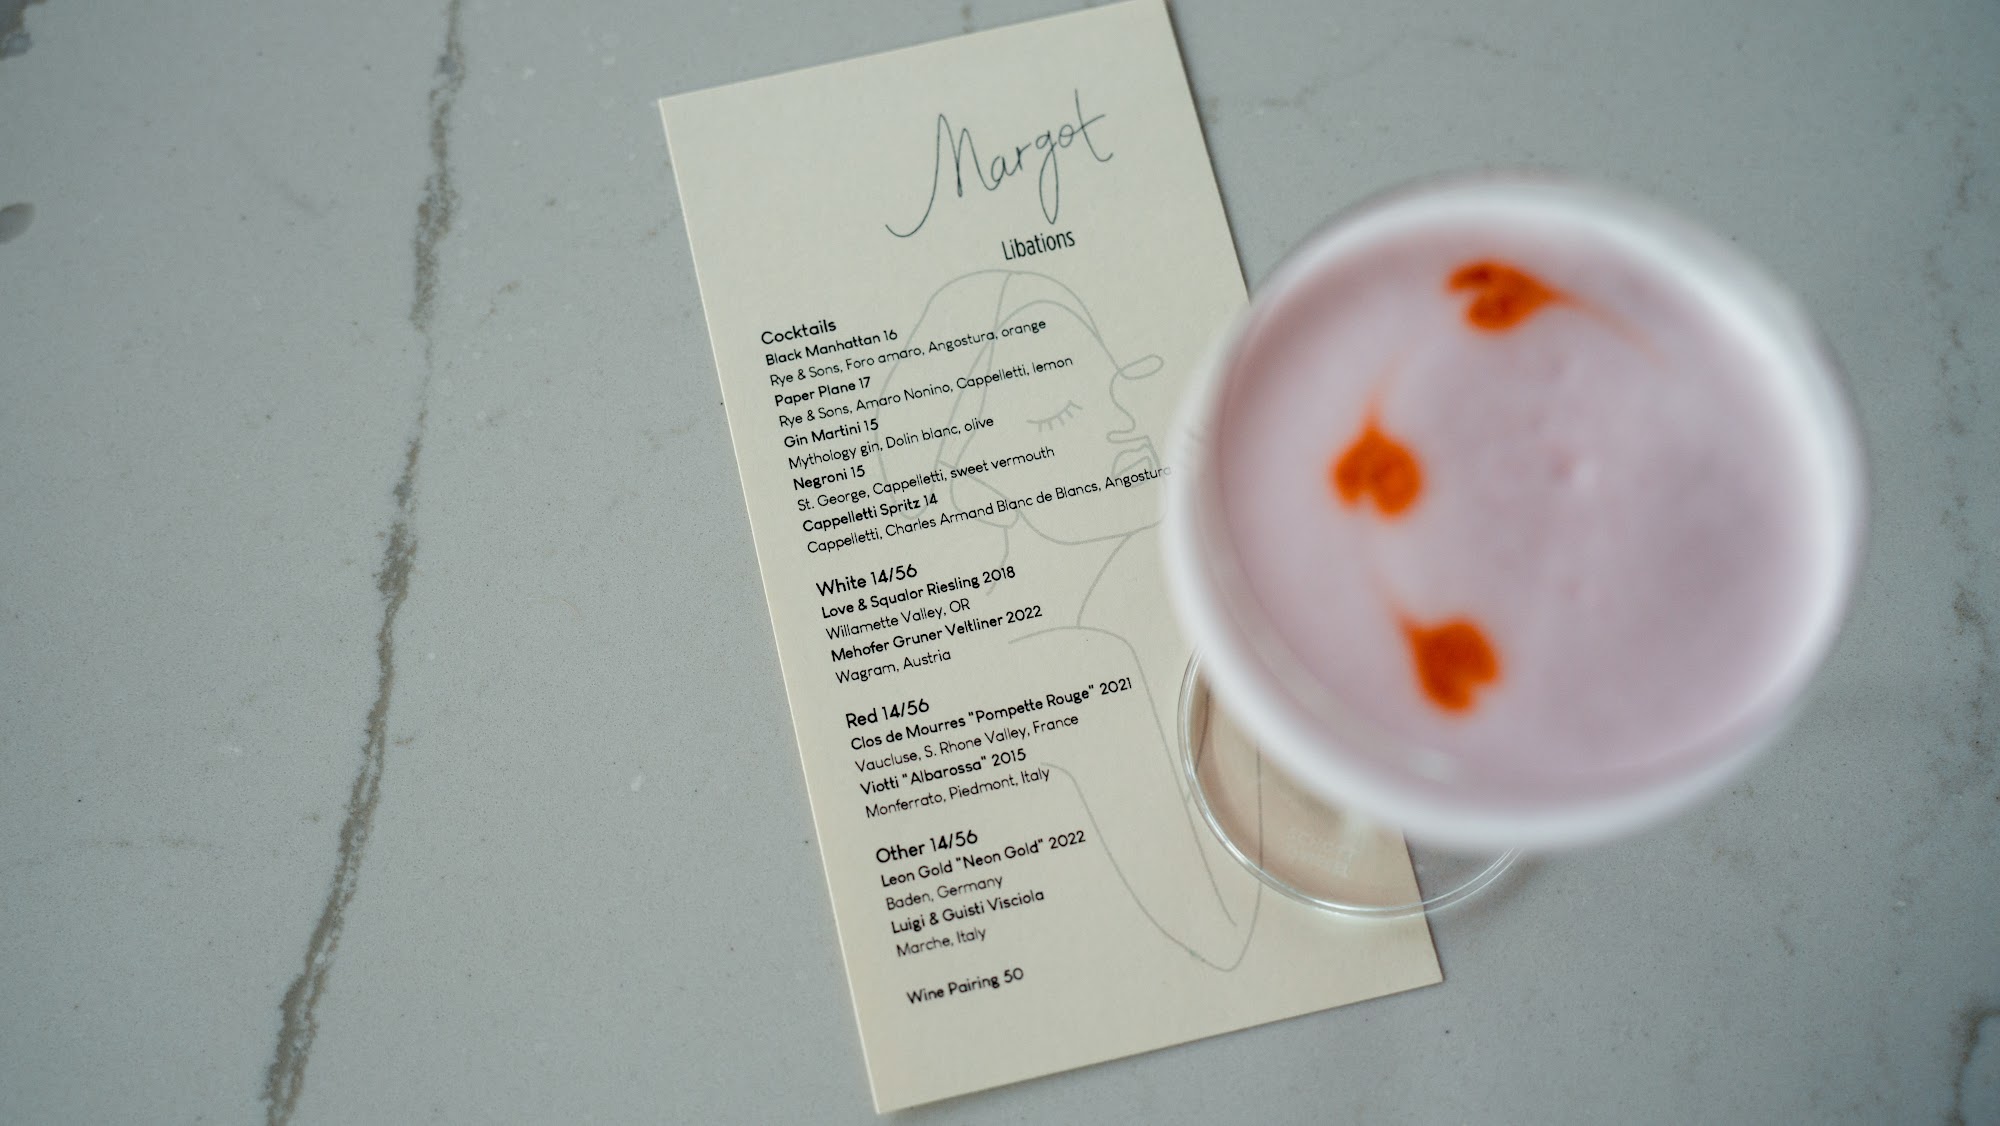 Margot
Libations
Cocktails
Black Manhattan 16
Rye & Sons, Foro amaro, Angostura, orange
Paper Plane 17
Rye & Sons, Amaro Nonino, Cappelletti, lemon
Gin Martini 15
Mythology gin, Dolin blanc, olive
Negroni 15
St. George, Cappelletti, sweet vermouth
Cappelletti Spritz 14
Cappelletti, Charles Armand Blanc de Blancs, Angostura
White 14/56
Love & Squalor Riesling 2018
Willamette Valley, OR
Mehofer Gruner Veltliner 2022
Wagram, Austria
Red 14/56
Clos de Mourres "Pompette Rouge" 2021
Vaucluse, S. Rhone Valley, France
Viotti "Albarossa" 2015
Monferrato, Piedmont, Italy
Other 14/56
Leon Gold "Neon Gold" 2022
Baden, Germany
Luigi & Guisti Visciola
Marche, Italy
Wine Pairing 50